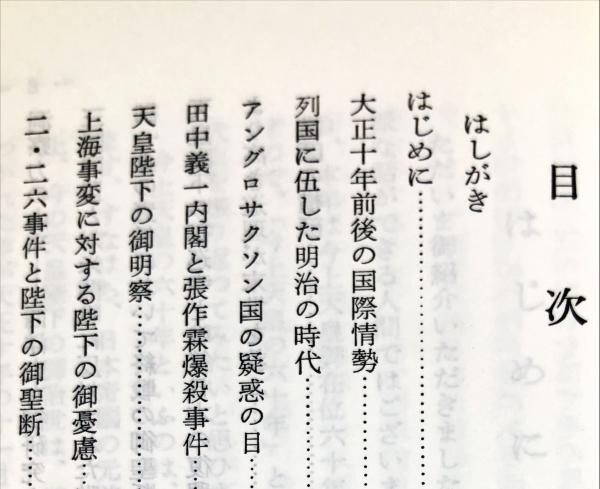 目次
はしがき
はじめに……………………
大正十年前後の国際情勢………
列国に伍した明治の時代………
アングロサクソン国の疑惑の目……
田中義一内閣と張作霖爆殺事件……
天皇陛下の御明察………………
上海事変に対する陛下の御憂慮……
二・二六事件と陛下の御聖断……